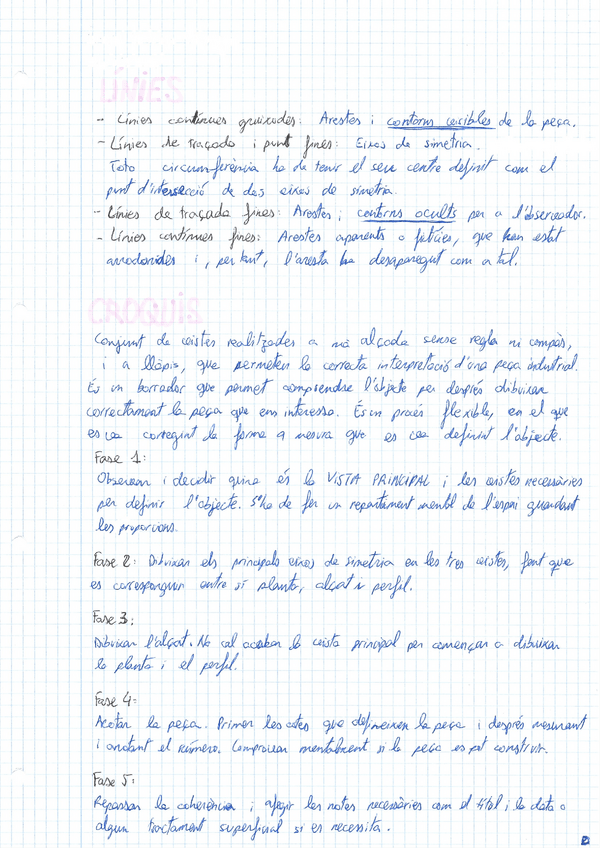 LÍNIES
- Línies contínues gruixudes: Arestes i contorns visibles de la peça.
- Línies de traçada i punt fines: Eixos de simetria.
Tota circumferència ha de tenir el seu centre definit com el
punt d'intersecció de dos eixos de simetria.
- Línies de traçada fines: Arestes i contorns ocults per a l'observador.
- Línies contínues fines: Arestes aparents o fictícies, que han estat
arrodonides i, per tant, l'aresta ha desaparegut com a tal.
CROQUIS
Conjunt de vistes realitzades a mà alçada sense regla ni compàs,
i a llàpis, que permeten la correcta interpretació d'una peça industrial.
És un borrador que permet comprendre l'objecte per després dibuixar
correctament la peça que ens interessa. És un procés flexible, en el que
es va corregint la forma a mesura que es va definint l'objecte.
Fase 1:
Observar i decidir quina és la VISTA PRINCIPAL i les vistes necessàries
per definir l'objecte. S'ha de fer un repartiment mental de l'espai guardant
les proporcions.
Fase 2: Dibuixar els principals eixos de simetria en les tres vistes, fent que
es corresponguin entre sí planta, alçat i perfil.
Fase 3:
Dibuixar l'alçat. No cal acabar la vista principal per començar a dibuixar
la planta i el perfil.
Fase 4:
Acotar la peça. Primer les cotes que defineixen la peça i després mesurant
i anotant el número. Comprovar mentalment si la peça es pot construir.
Fase 5:
Repassar la coherència i afegir les notes necessàries com el títol i la data o
algun tractament superficial si es necessita.
2